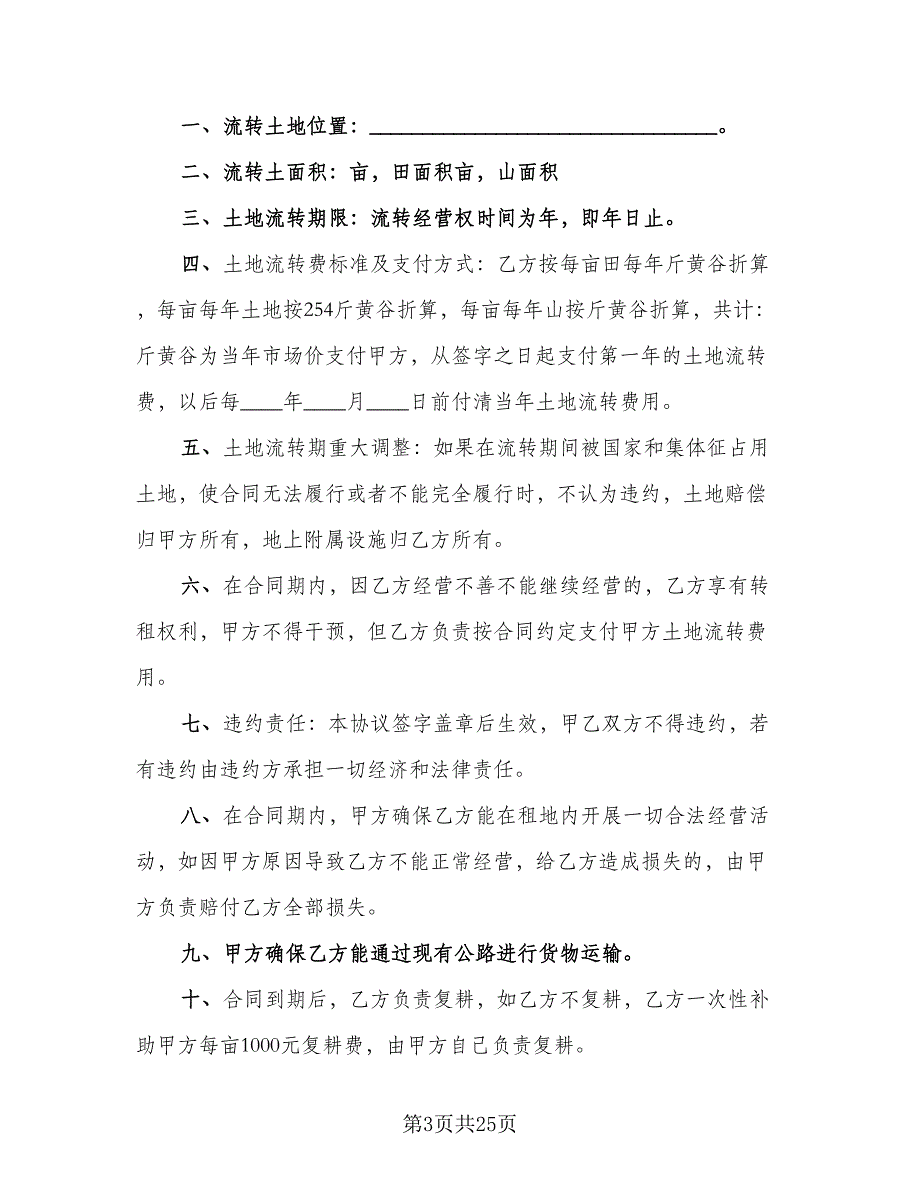 一、流转土地位置：_________________________________。
二、流转土面积：亩，田面积亩，山面积
三、土地流转期限：流转经营权时间为年，即年日止。
四、土地流转费标准及支付方式：乙方按每亩田每年斤黄谷折算
，每亩每年土地按254斤黄谷折算，每亩每年山按斤黄谷折算，共计：
斤黄谷为当年市场价支付甲方，从签字之日起支付第一年的土地流转
费，以后每____年____月____日前付清当年土地流转费用。
五、土地流转期重大调整：如果在流转期间被国家和集体征占用
土地，使合同无法履行或者不能完全履行时，不认为违约，土地赔偿
归甲方所有，地上附属设施归乙方所有。
六、在合同期内，因乙方经营不善不能继续经营的，乙方享有转
租权利，甲方不得干预，但乙方负责按合同约定支付甲方土地流转费
用。
七、违约责任：本协议签字盖章后生效，甲乙双方不得违约，若
有违约由违约方承担一切经济和法律责任。
八、在合同期内，甲方确保乙方能在租地内开展一切合法经营活
动，如因甲方原因导致乙方不能正常经营，给乙方造成损失的，由甲
方负责赔付乙方全部损失。
九、甲方确保乙方能通过现有公路进行货物运输。
十、合同到期后，乙方负责复耕，如乙方不复耕，乙方一次性补
助甲方每亩1000元复耕费，由甲方自己负责复耕。
第3页共25页